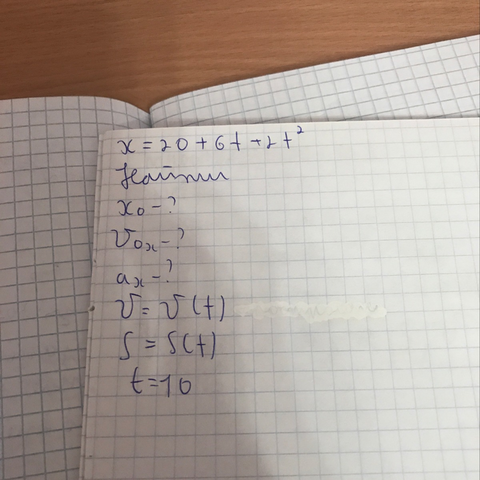 x = 20 + 6t + 2t²
Найти
x₀ - ?
v₀ₓ - ?
aₓ - ?
v = v(t)
S = S(t)
t = 10